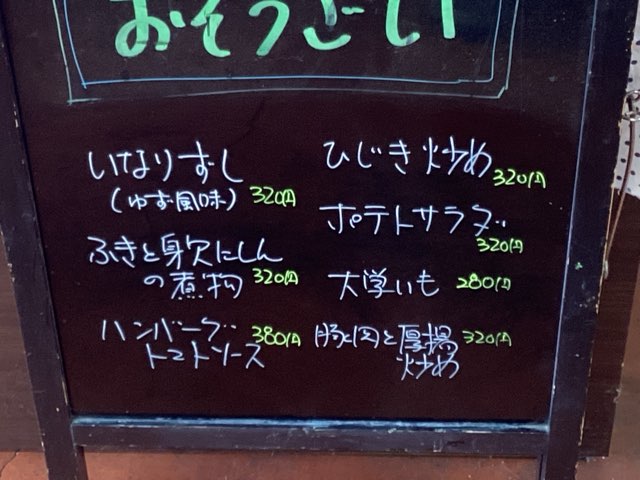 おそうざい
いなりずし
(ゆず風味) 320円
ふきと身欠にしん
の煮物 320円
ハンバーグ 380円
トマトソース
ひじき炒め 320円
ポテトサラダ
320円
大学いも 280円
豚肉と厚揚 320円
炒め